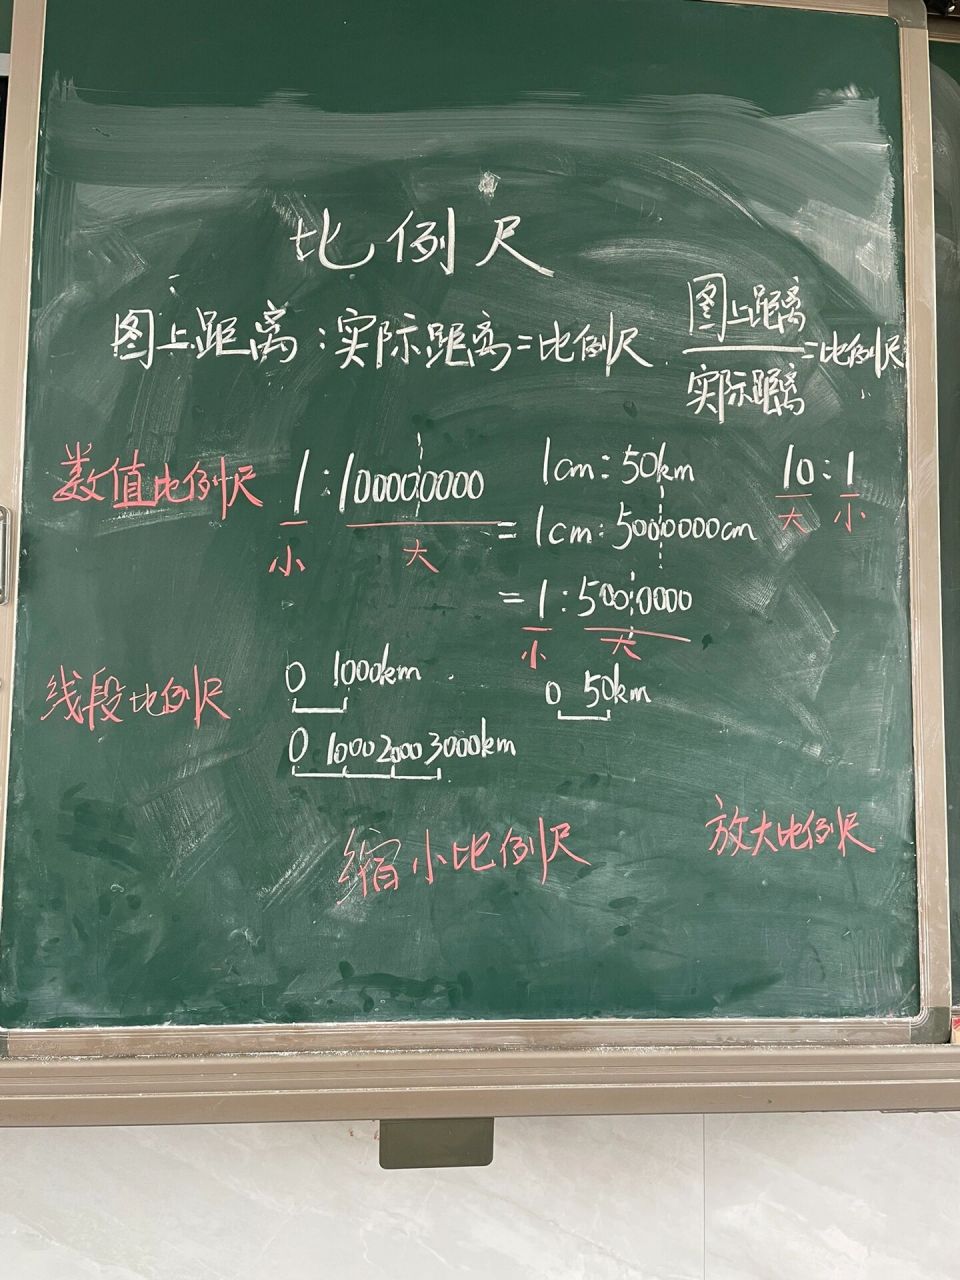 比例尺
图上距离:实际距离=比例尺 图上距离/实际距离=比例尺
数值比例尺 1:100000000 1cm:50km 10:1
小 大 =1cm:5000000cm 大 小
=1:5000000
小 大
线段比例尺 0 1000km 0 50km
0 1000 2000 3000km
缩小比例尺 放大比例尺